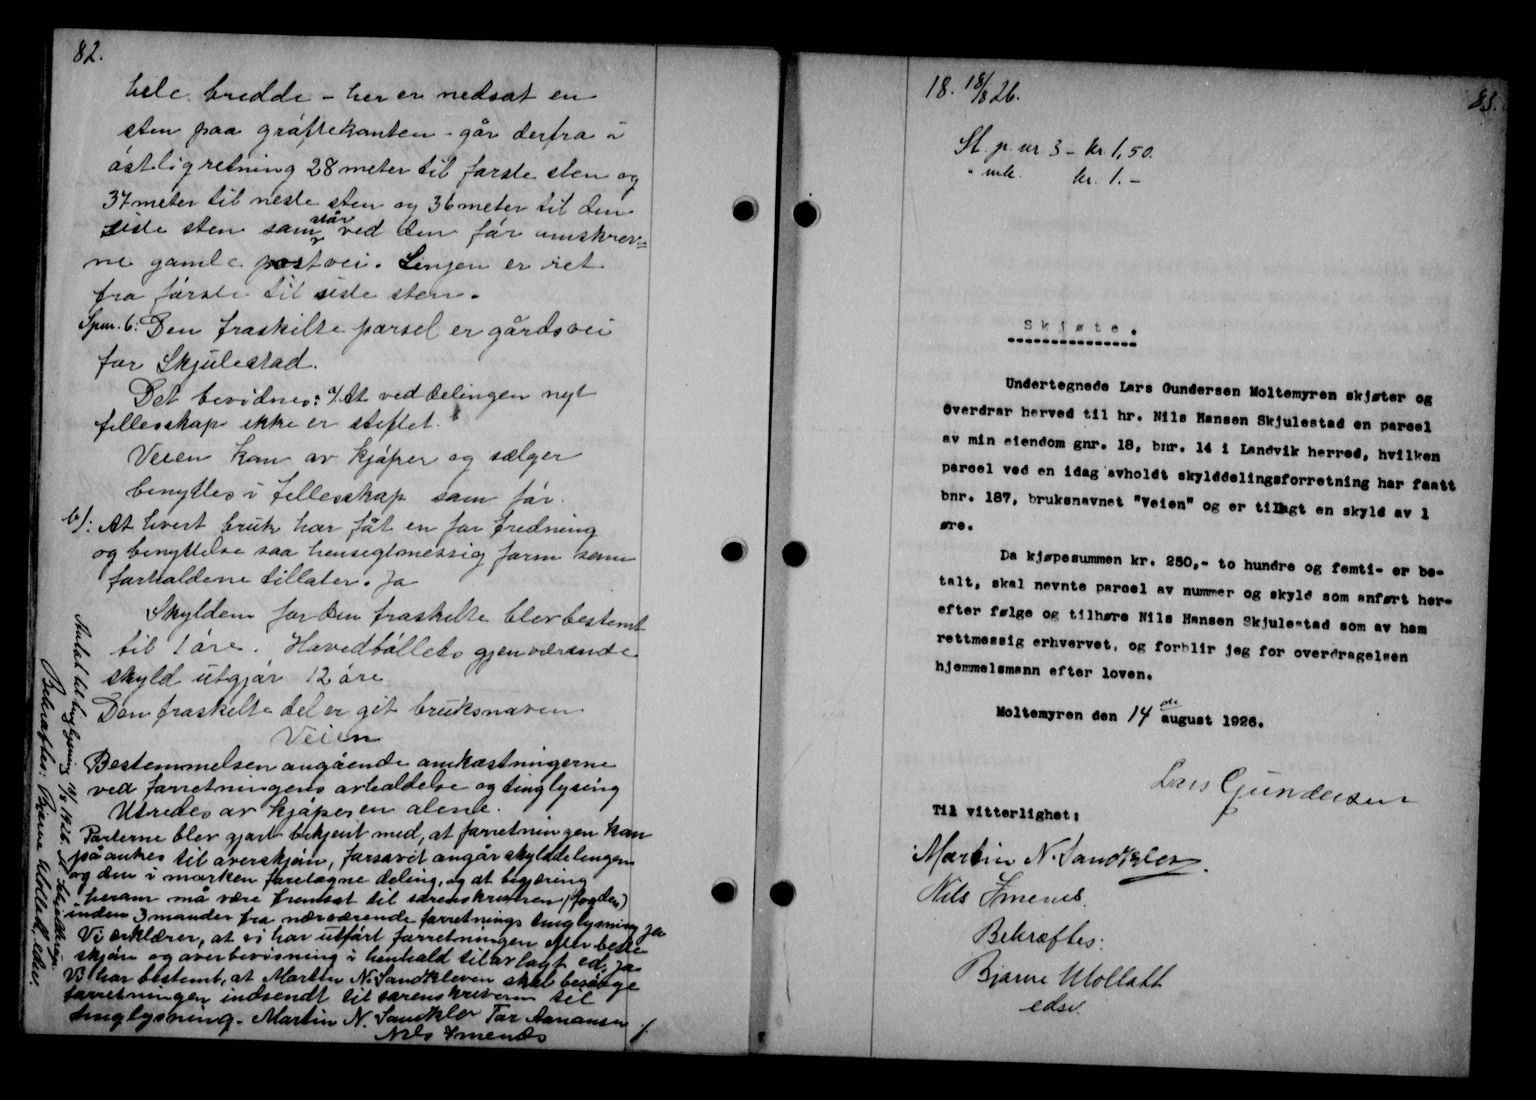 82.
hele bredde - her er nedsat en
sten paa grøftekanten - går derfra i
østlig retning 28 meter til første sten og
37 meter til neste sten og 36 meter til den
siste sten som står ved den før omskrev=
ne gamle postvei. Linjen er ret
fra første til siste sten.
Spm. 6: Den fraskilte parsel er gårdsvei
for Skjulestad.
Det bevidnes: a/. At ved delingen nyt
fellesskap ikke er stiftet.
Veien kan av kjøper og sælger
benyttes i fellesskap som før.
b/: At hvert bruk har fåt en for fredning
og benyttelse saa hensegtmessig form som
forholdene tillater. Ja
Skylden for den fraskilte blev bestemt
til 1 øre. Hovedbøllets gjenværende
skyld utgjør 12 øre
Den fraskilte del er git bruksnaven
Veien
Bestemmelsen angående omkostningerne
ved forretningens avholdelse og tinglysing
Utredes av kjøperen alene.
Parterne blev gjort bekjent med, at forretningen kan
påankes til overskjøn, forsåvit angår skylddelingen
og den i marken foretagne deling, og at begjæring
herom må være fremsat til sorenskriveren (fogden)
inden 3 måneder fra nærværende forretnings tinglysning Ja
Vi erklærer, at vi har utført forretningen efter beste
skjøn og overbevisning i henhold til avlagt ed. Ja
Vi har bestemt, at Martin N. Sandkleven skal besørge
forretningen indsendt til sorenskriveren til
tinglysning. Martin N. Sandklev Tor Aanansen
Nils Imenes
Bekræftes: Bjarne Mollatt, edsv.
18. 18/8 26.
83.
St. p. nr. 3 - kr. 1,50.
" mk. kr. 1.-
Skjøte.
Undertegnede Lars Gundersen Moltemyren skjøter og
överdrar herved til hr. Nils Hansen Skjulestad en parsel
av min eiendom gnr. 18, bnr. 14 i Landvik herred, hvilken
parsel ved en idag avholdt skylddelingsforretning har faatt
bnr. 187, bruksnavnet "Veien" og er tillagt en skyld av 1
øre.
Da kjøpesummen kr. 250,- to hundre og femti- er be-
talt, skal nevnte parsel av nummer og skyld som anført her-
efter følge og tilhøre Nils Hansen Skjulestad som av ham
rettmessig erhvervet, og forblir jeg for overdragelsen
hjemmelsmann efter loven.
Moltemyren den 14de august 1926.
Lars Gundersen
Til vitterlighet:
Martin N. Sandklev.
Nils Imenes.
Bekræftes:
Bjarne Mollatt
edsv.